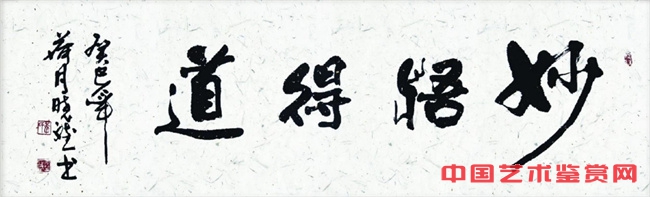 妙悟得道
癸巳年
荷月晓龙书
中国艺术鉴赏网